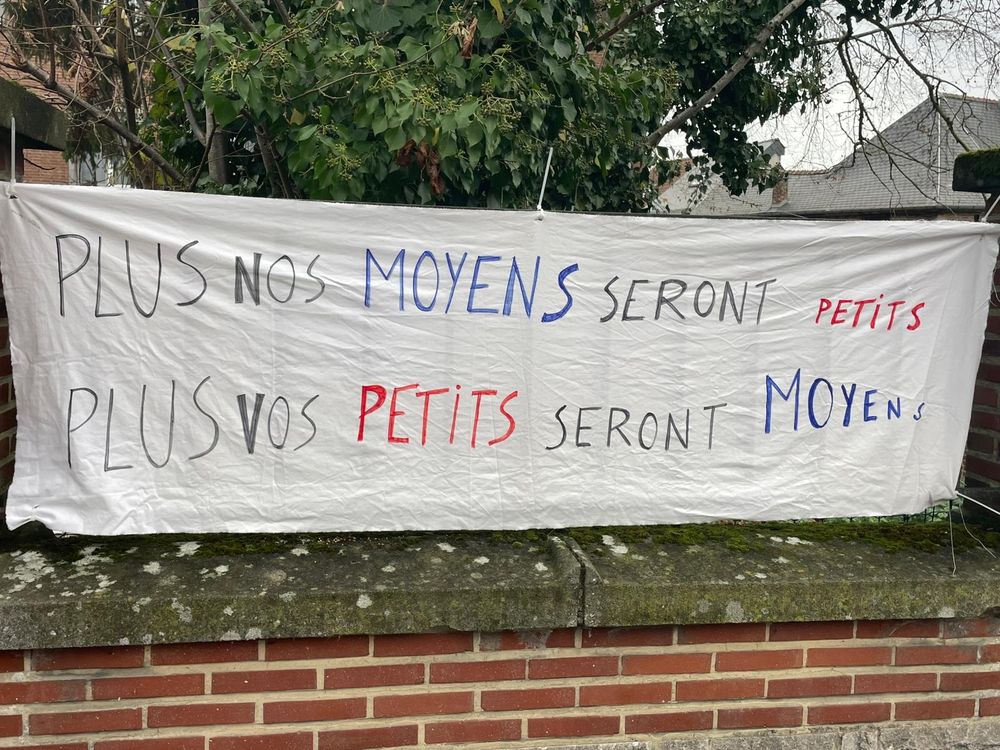 PLUS NOS MOYENS SERONT PETITS
PLUS VOS PETITS SERONT MOYENS